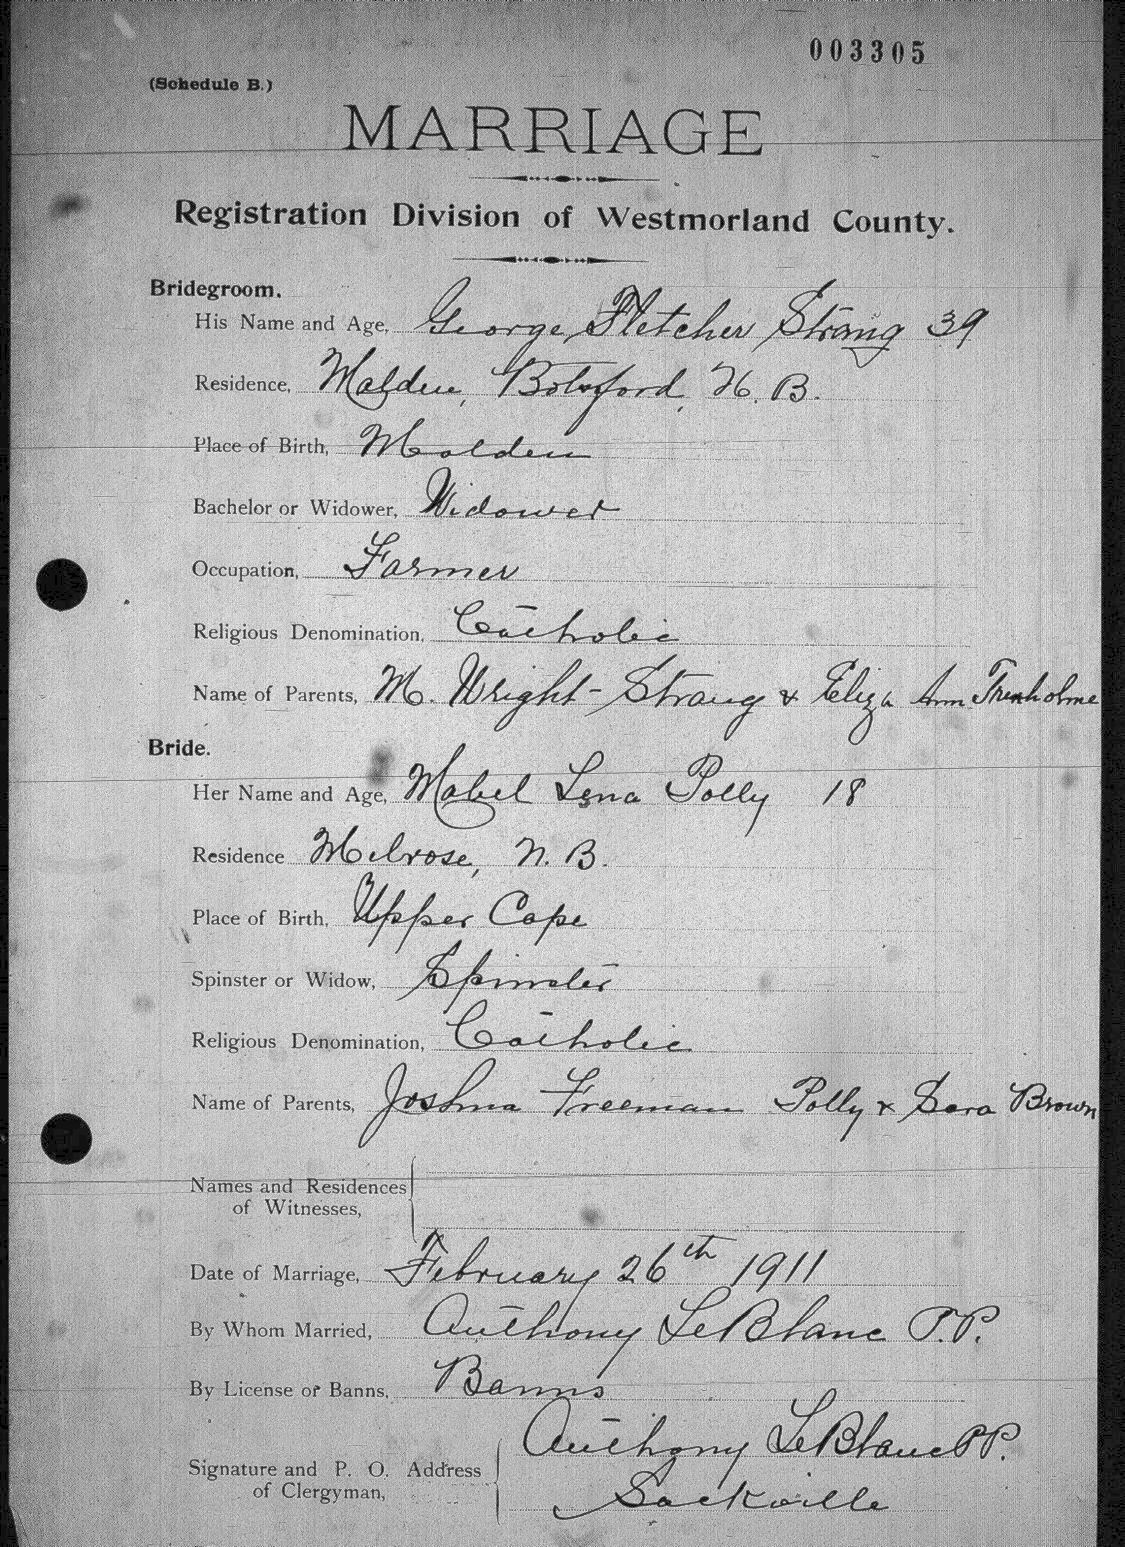 003305
(Schedule B.)
MARRIAGE
Registration Division of Westmorland County.
Bridegroom.
His Name and Age, George Fletcher Strang 39
Residence, Malden, Botsford, N. B.
Place of Birth, Malden
Bachelor or Widower, Widower
Occupation, Farmer
Religious Denomination, Catholic
Name of Parents, M. Wright-Strang & Eliza Ann Trenholme
Bride.
Her Name and Age, Mabel Lena Polly 18
Residence Melrose, N. B.
Place of Birth, Upper Cape
Spinster or Widow, Spinster
Religious Denomination, Catholic
Name of Parents, Joshua Freeman Polly & Sara Brown
Names and Residences
of Witnesses,
Date of Marriage, February 26th 1911
By Whom Married, Anthony LeBlanc P.P.
By License or Banns, Banns
Anthony LeBlanc P.P.
Signature and P. O. Address
of Clergyman, Sackville